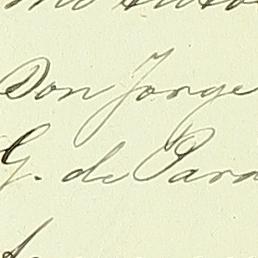 Don Jorge
G. de Para